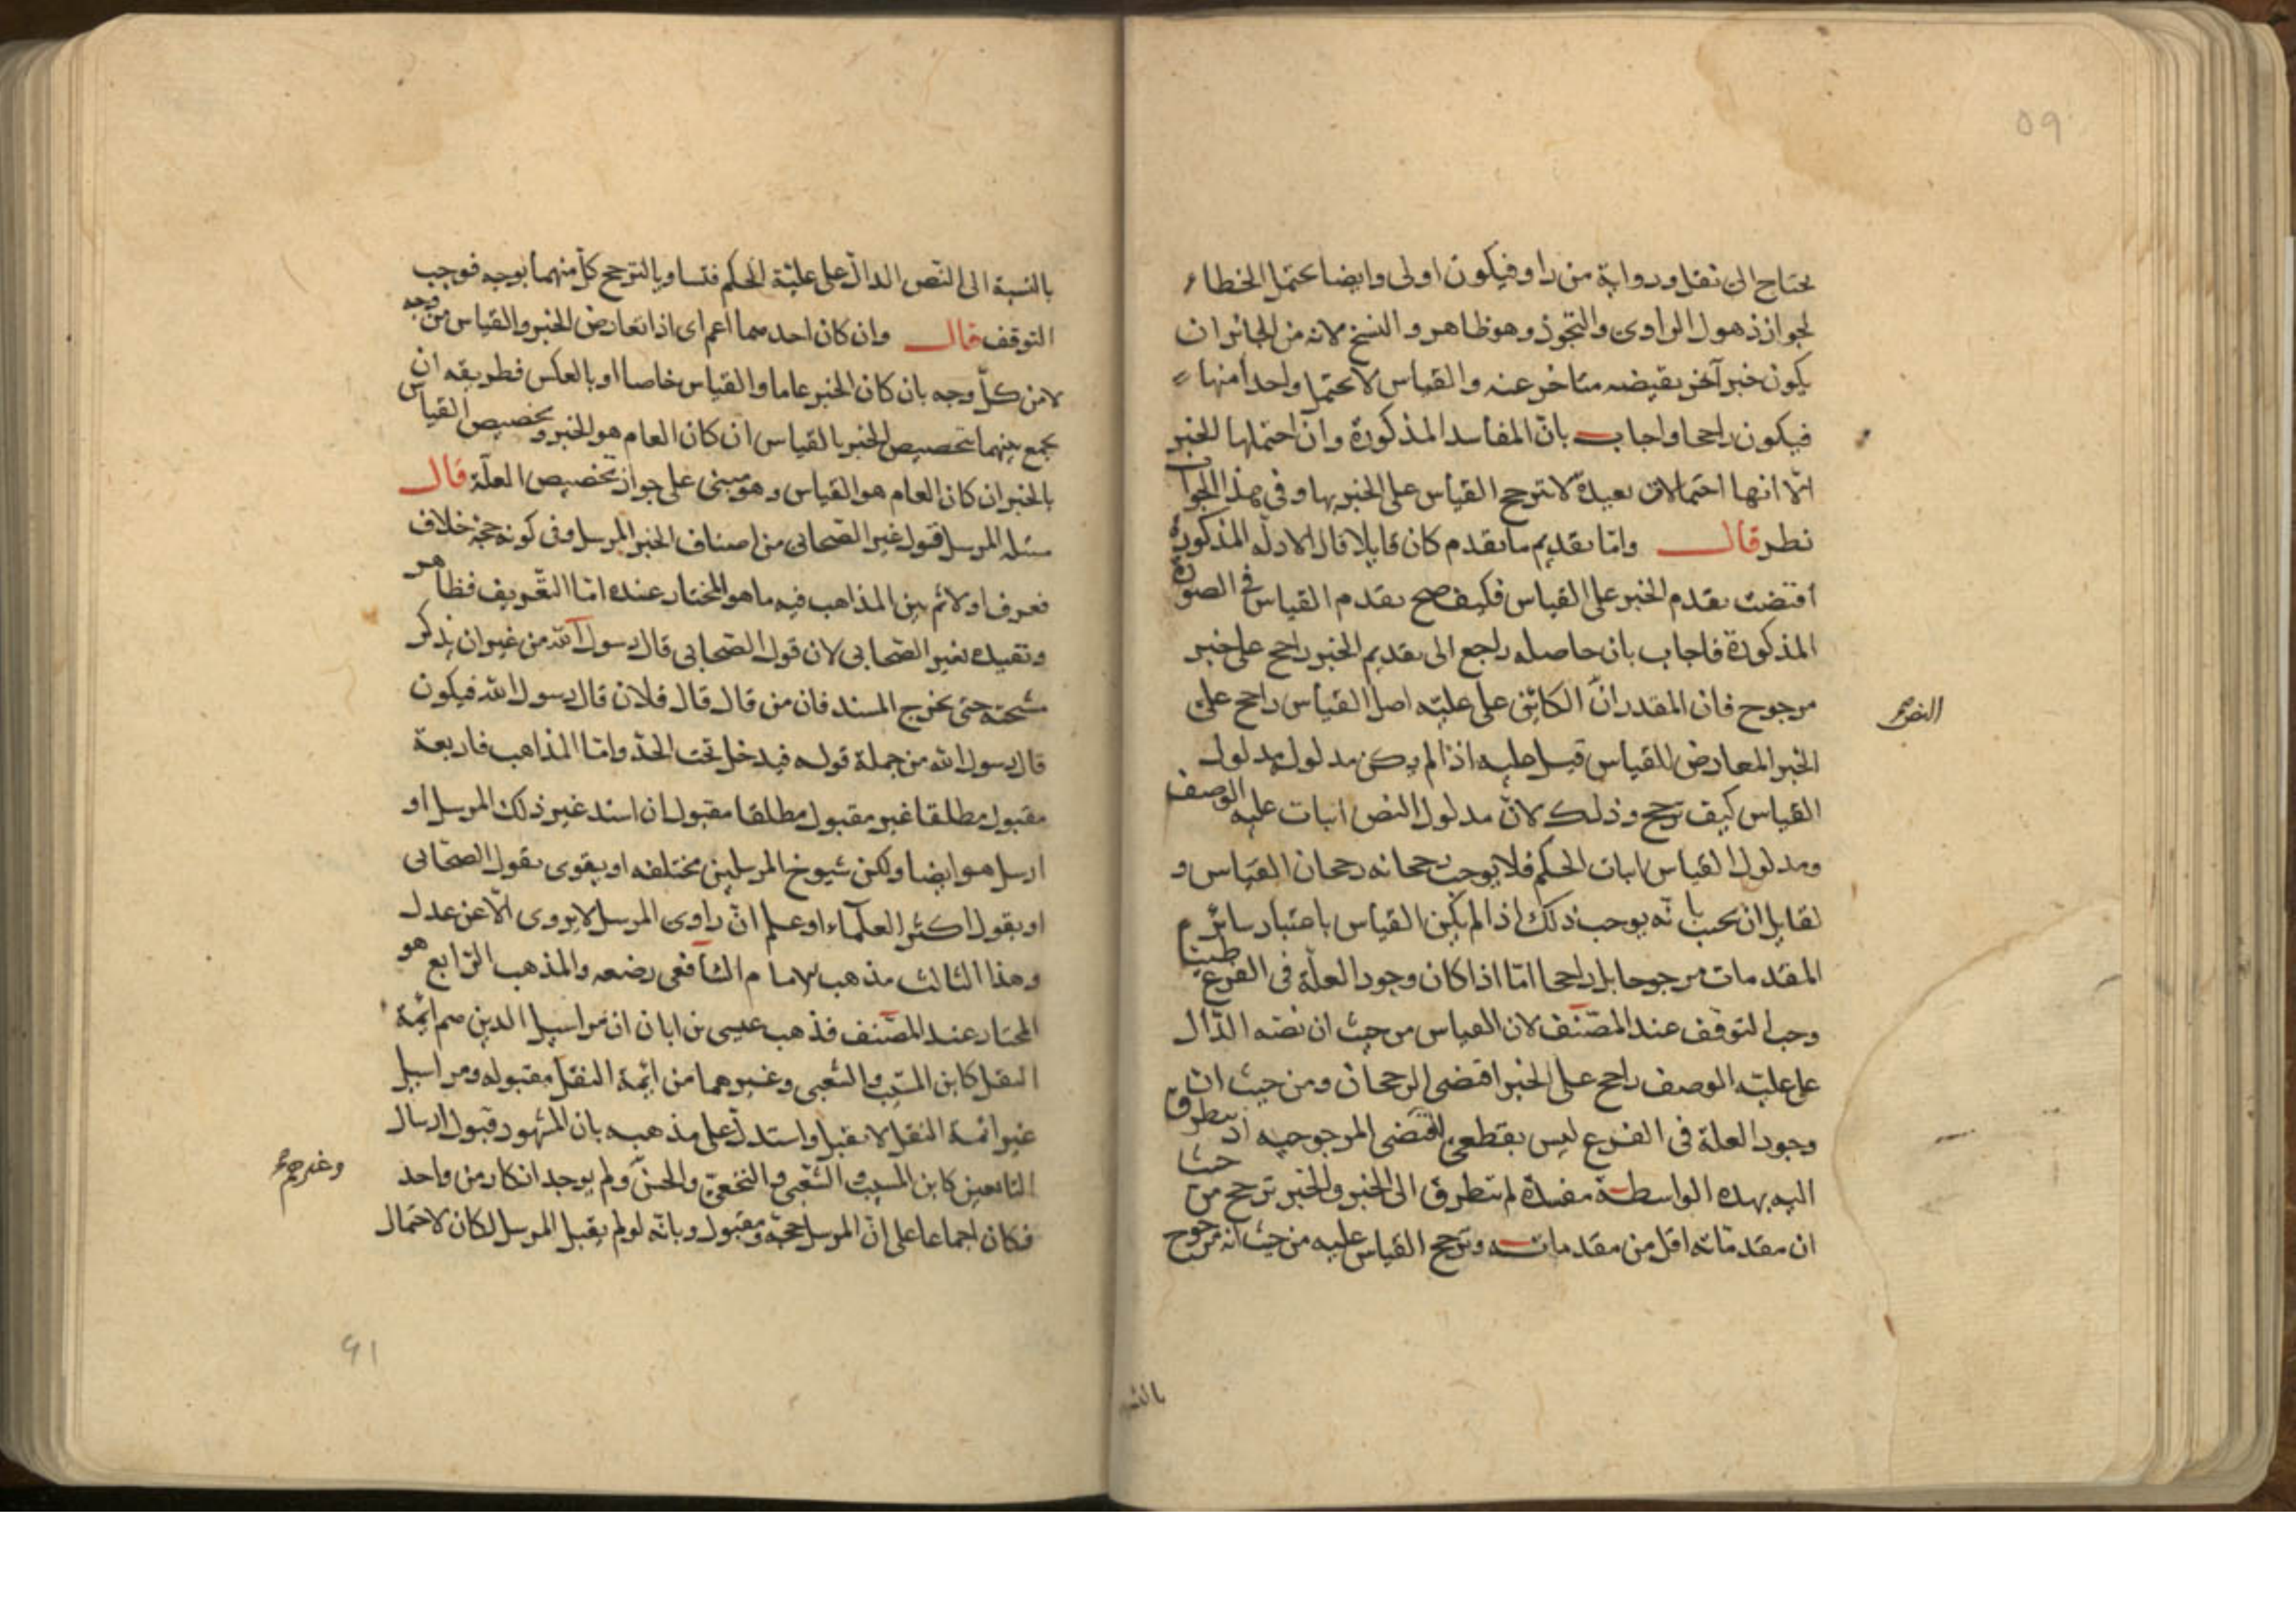 ٥٩
يحتاج الى نقل ورواية من راو فيكون اولى وايضا يحتمل الخطاء
لجواز ذهول الراوى والتجوز وهو ظاهر والنسخ لانه من الجائز ان
يكون خبر آخر نقيضه متاخر عنه والقياس لا يحتمل واحدا منها
فيكون راجحا واجاب بان المفاسد المذكورة وان احتملها للخبر
الا انها احتمالات بعيدة لا ترجح القياس على الخبر بها وفى هذا الجواب
نظر قال واما تقديم ما تقدم كان قايلا قال الادلة المذكورة
اقتضت تقدم الخبر على القياس فكيف صح تقدم القياس فى الصورة
المذكورة فاجاب بان حاصله راجع الى تقديم الخبر راجح على خبر
مرجوح فان المقدر ان الكائن على علية اصل القياس راجح على
النص صح
الخبر المعارض للقياس قيل عليه اذا لم يكن مدلوله مدلول
القياس كيف ترجح وذلك لان مدلول النص اثبات علية الوصف
ومدلول القياس اثبات الحكم فلا يوجب رجحانه رجحان القياس و
لقايل ان يجيب بانه يوجب ذلك اذا لم يكن القياس باعتبار سائر
المقدمات مرجوحا بل راجحا اما اذا كان وجود العلة فى الفرع ظنيا
وجب التوقف عند المصنف لان القياس من حيث ان نصه الدال
على علية الوصف راجح على الخبر اقتضى الرجحان ومن حيث ان
وجود العلة فى الفرع ليس بقطعى اقتضى المرجوحية اذ يتطرق
اليه بهذه الواسطة مفسدة لم تتطرق الى الخبر والخبر ترجح من حيث
ان مقدماته اقل من مقدماته وترجح القياس عليه من حيث انه مرجوح
بالنسبة الى النص الدال على علية الحكم فتساويا لترجح كل منهما بوجه فوجب
التوقف قال وان كان احدهما اعم اى اذا تعارض الخبر والقياس من وجه
لا من كل وجه بان كان الخبر عاما والقياس خاصا او بالعكس فطريقه ان
يجمع بينهما بتخصيص الخبر بالقياس ان كان العام هو الخبر وتخصيص القياس
بالخبر ان كان العام هو القياس وهو مبنى على جواز تخصيص العلة قال
مسئلة المرسل قول غير الصحابى من اصناف الخبر المرسل وفى كونه حجة خلاف
فعرف اولا ثم بين المذاهب فيه ما هو المختار عنده اما التعريف فظاهر
وتقييده بغير الصحابى لان قول الصحابى قال رسول الله من غير ان يذكر
شيخه حتى يخرج المسند فان من قال قال فلان قال رسول الله فيكون
قال رسول الله من جملة قوله فيدخل تحت الحد واما المذاهب فاربعة
مقبول مطلقا غير مقبول مطلقا مقبول ان اسند غير ذلك المرسل او
ارسل هو ايضا ولكن شيوخ المرسلين مختلفه او يقوى بقول الصحابى
او بقول اكثر العلماء او علم ان راوى المرسل لا يروى الا عن عدل
وهذا الثالث مذهب الامام الشافعى رضعه والمذهب الرابع هو
المختار عند المصنف فذهب عيسى بن ابان ان مراسيل الذين هم ائمة
النقل كابن المسيب والشعبى وغيرهما من ائمة النقل مقبوله ومراسيل
غير ائمة النقل لا تقبل واستدل على مذهبه بان المشهور قبول ارسال
التابعين كابن المسيب والشعبى والنخعى والحسن ولم يوجد انكار من واحد
وغيرهم صح
فكان اجماعا على ان المرسل حجة ومقبول وبانه لو لم يقبل المرسل لكان لاحتمال